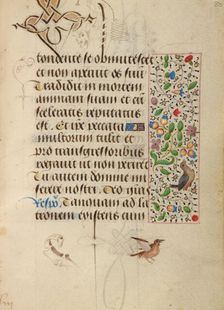 tondente se obmutescet
et non aperuit os suū
Tradidit in mortem
animam suam et cū
sceleratis reputatus
est. Et ip̄e peccata
multorum tulit et
pro transgressoribus
rogauit ut non perirēt
Tu autem domine mi
serere nostri. Deo gr̄as
Respō. Tanquam ad la
tronem existis cum